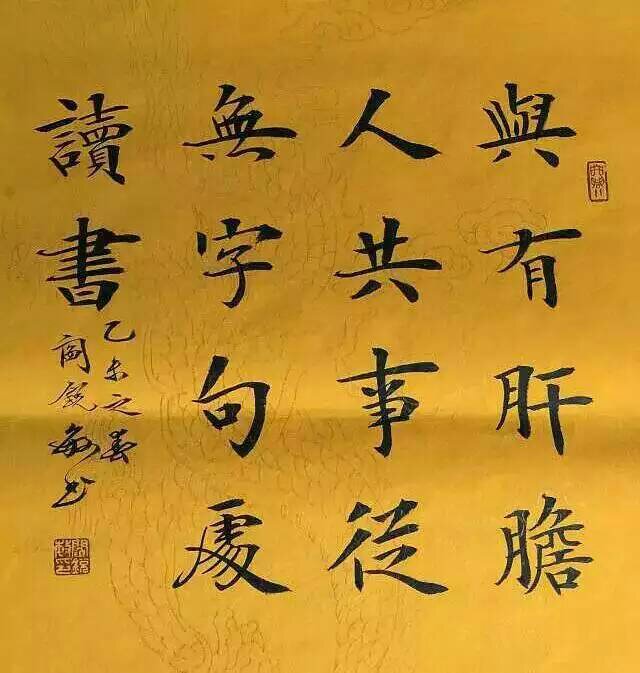 與有肝膽
人共事從
無字句處
讀書
乙未之春
閻銳敏書